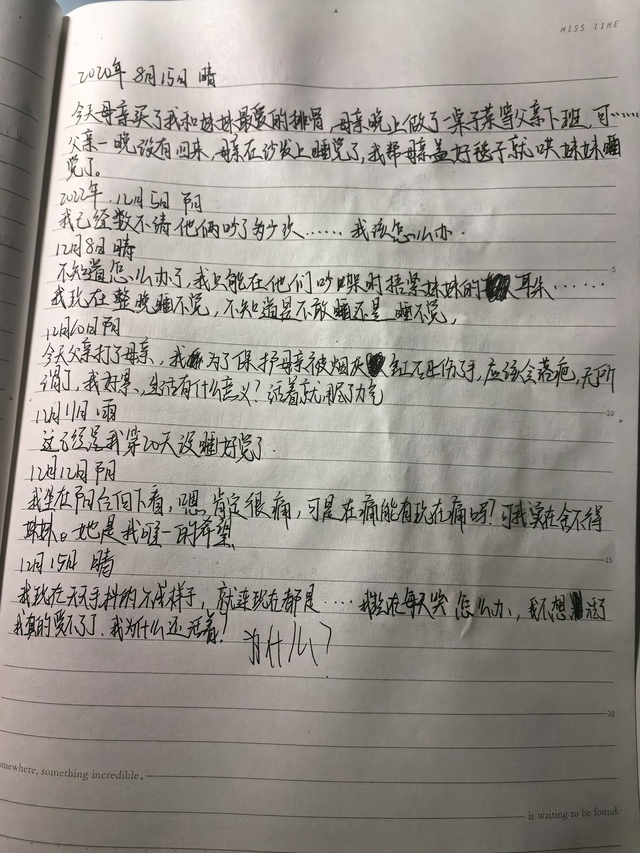 MISS TIME
2020年 8月15日 晴
今天母亲买了我和妹妹最爱的排骨,母亲晚上做了一桌子菜等父亲下班,可
父亲一晚没有回来,母亲在沙发上睡觉了,我帮母亲盖好毯子就哄妹妹睡
觉了。
2022年.12月5日 阴
我已经数不清他俩吵了多少次……我该怎么办.
12月8日 晴
不知道怎么办了,我只能在他们吵架时捂紧妹妹的耳朵……
我现在整晚睡不觉,不知道是不敢睡还是睡不觉,
12月10日阴
今天父亲打了母亲,我为了保护母亲被烟灰缸石正伤了手,应该会落疤,无所
谓了,我好累、生活有什么意义?活着就用尽了力气
12月11日 雨
这已经是我第20天没睡好觉了.
12月12日 阴
我坐在阳台向下看,嗯,肯定很痛,可是在痛能有现在痛吗?可我实在舍不得
妹妹。她是我唯一的希望
12月15日 晴
我现在天天手抖的不成样子,就连现在都是……我现在每天哭 怎么办、我不想活了
我真的受不了了、我为什么还活着?
为什么?
5
10
15
20
mewhere, something incredible,
is waiting to be found.